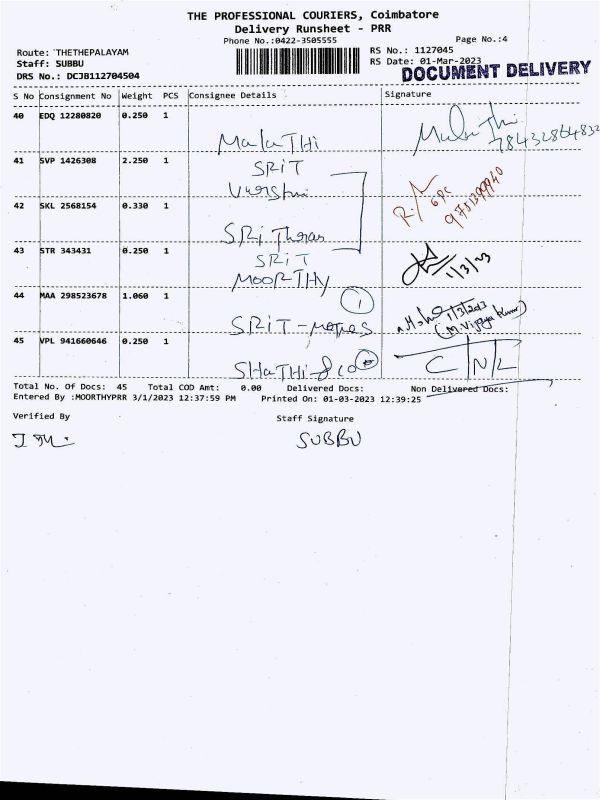 THE PROFESSIONAL COURIERS, Coimbatore
Delivery Runsheet - PRR
Phone No.:0422-3505555 Page No.:4
Route: THETHEPALAYAM RS No.: 1127045
Staff: SUBBU RS Date: 01-Mar-2023
DRS No.: DCJB112704504 DOCUMENT DELIVERY
S No Consignment No Weight PCS Consignee Details Signature
40 EDQ 12280820 0.250 1
MalaTHi
41 SVP 1426308 2.250 1 SRiT
6 pc
42 SKL 2568154 0.330 1
SRi Tharan
43 STR 343431 0.250 1 SRiT 1/3/23
MOORTHY
44 MAA 298523678 1.060 1 1
SRiT 1/3/2023
(M. Vijaya Kumar)
45 VPL 941660646 0.250 1 C N L
SHaTHi
Total No. Of Docs: 45 Total COD Amt: 0.00 Delivered Docs: Non Delivered Docs:
Entered By :MOORTHYPRR 3/1/2023 12:37:59 PM Printed On: 01-03-2023 12:39:25
Verified By Staff Signature
SUBBU